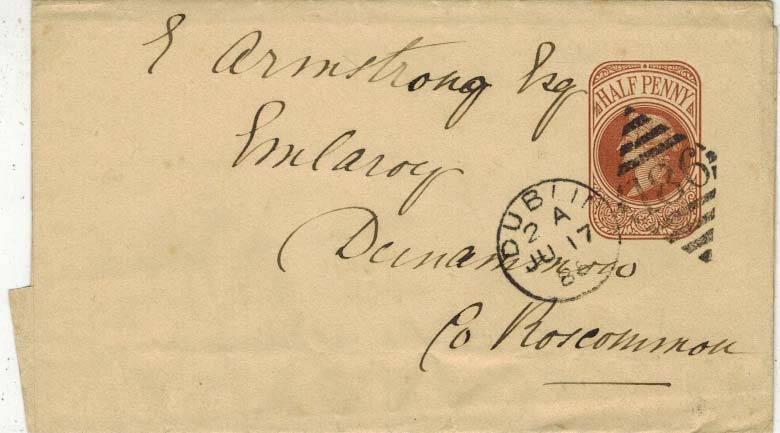 E Armstrong Esq
HALF PENNY
Emlaroy
186
DUBLIN
2 A
JU 17
88
Co Roscommon